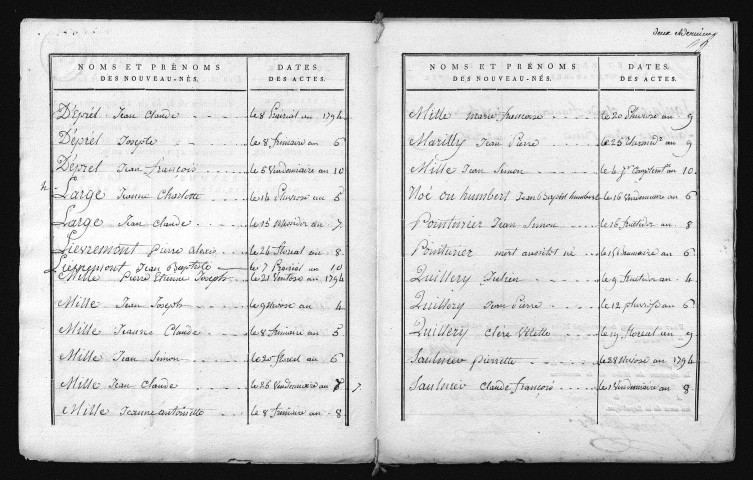 NOMS ET PRÉNOMS DES NOUVEAU-NÉS. DATES DES ACTES.
DépréL Jean Claude le 8 Prairial an 1794
DépréL Joseph le 8 frimaire an 6
DépreL Jean françois le 5 Vendemiaire an 10
Large Jeanne Charlotte le 14 Pluviose an 5
Large Jean Claude le 15 Messidor an 7.
Lievremont Pierre alexis le 24 floreal an 8
Lievremont Jean Baptiste le 7 Prairial an 10
Mille Pierre Etienne Joseph le 21 Ventose an 1794
Mille Jean Joseph le 9 nivose an 4
Mille Jeanne Claude le 8 frimaire an 5
Mille Jean Simon le 20 floreal an 6
Mille Jean Claude le 26 Vendemiaire an 7.
Mille Jeanne antoinette le 8 frimaire an 8
NOMS ET PRÉNOMS DES NOUVEAU-NÉS. DATES DES ACTES.
Mille marie francoise le 20 Pluviose an 9
Marilly Jean Pierre le 25 thermidr an 9
Mille Jean Simon le 4 Jr Complemre an 10.
Noé ou humbert Jean Baptiste humbert le 16 Vendemiaire an 6
Pointurier Jean Simon le 16 fructidor an 8
Pointurier mort aussitot né le 15 Brumaire an 6
Quillery Julien le 9 fructidor an 4
Quillery Jean Pierre le 12 pluviose an 6
Quillery Clere le 19 floreal an 9
Saulnier pierrette le 28 nivose an 1794
Saulnier Claude françois le 1 Vendemiaire an 8